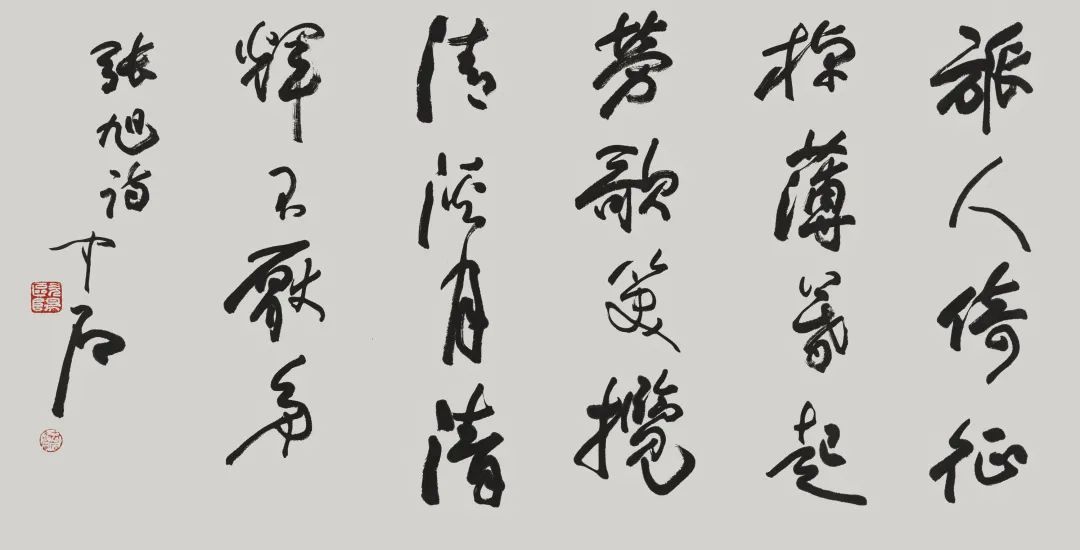 旅人倚征
棹薄暮起
勞歌笑攬
清溪月清
輝不厭多
張旭詩中石